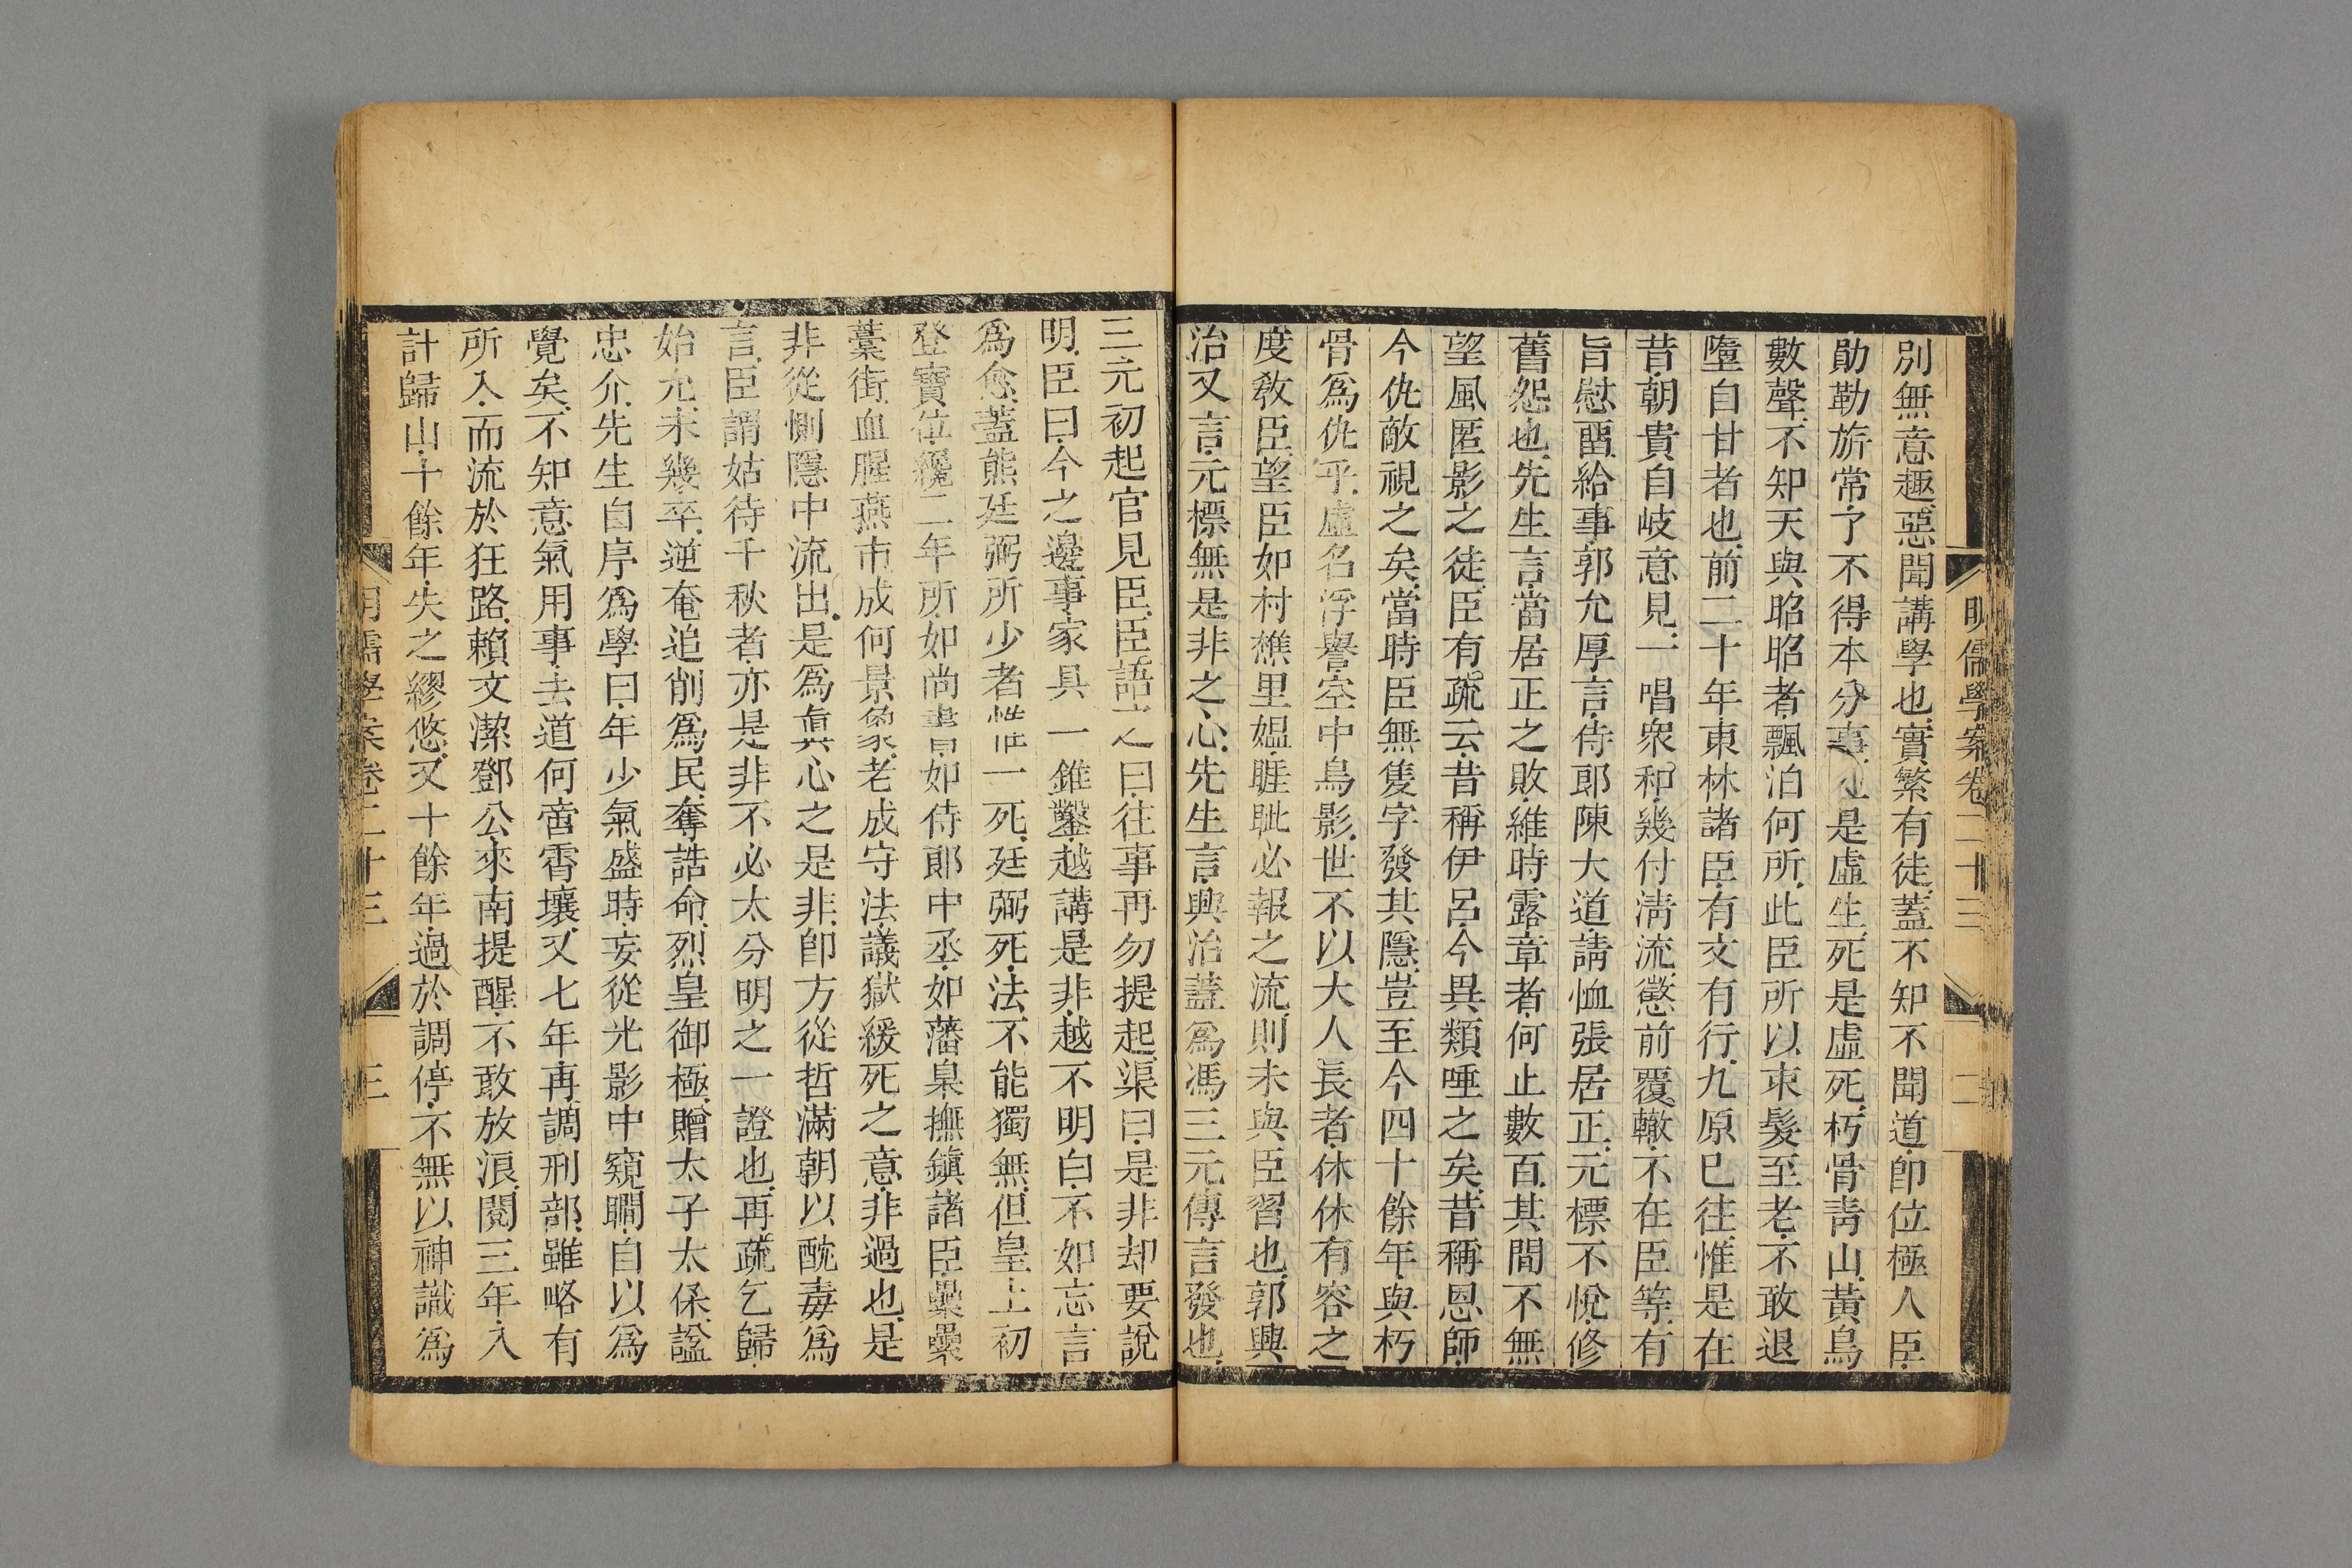 明儒學案卷二十三
二
別無意趣惡聞講學也實繁有徒蓋不知不聞道卽位極人臣
勛勒旂常了不得本分事生是虛生死是虛死朽骨靑山黃鳥
數聲不知天與昭昭者飄泊何所此臣所以束髮至老不敢退
墮自甘者也前二十年東林諸臣有文有行九原已往惟是在
昔朝貴自岐意見一唱衆和幾付淸流懲前覆轍不在臣等有
旨慰畱給事郭允厚言侍郎陳大道請恤張居正元標不悅修
舊怨也先生言當居正之敗維時露章者何止數百其間不無
望風匿影之徒臣有疏云昔稱伊呂今異類唾之矣昔稱恩師
今仇敵視之矣當時臣無隻字發其隱豈至今四十餘年與朽
骨爲仇乎虛名浮譽空中鳥影世不以大人長者休休有容之
度敎臣望臣如村樵里媼睚眦必報之流則未與臣習也郭興
治又言元標無是非之心先生言興治蓋爲馮三元傳言發也
三元初起官見臣臣語之曰往事再勿提起渠曰是非却要說
明臣曰今之邊事家具一錐鑿越講是非越不明白不如忘言
爲愈蓋熊廷弼所少者惟一死廷弼死法不能獨無但皇上初
登寶位纔二年所如尚書如侍郞中丞如藩臬撫鎮諸臣纍纍
藁街血腥燕市成何景象老成守法議獄緩死之意非過也是
非從惻隱中流出是爲眞心之是非卽方從哲滿朝以酖毒爲
言臣謂姑待千秋者亦是非不必太分明之一證也再疏乞歸
始允未幾卒逆奄追削爲民奪誥命烈皇御極贈太子太保諡
忠介先生自序爲學曰年少氣盛時妄從光影中窺瞷自以爲
覺矣不知意氣用事去道何啻霄壤又七年再調刑部雖略有
所入而流於狂路賴文潔鄧公來南提醒不敢放浪閱三年入
計歸山十餘年失之繆悠又十餘年過於調停不無以神識爲
明儒學案卷二十三
三